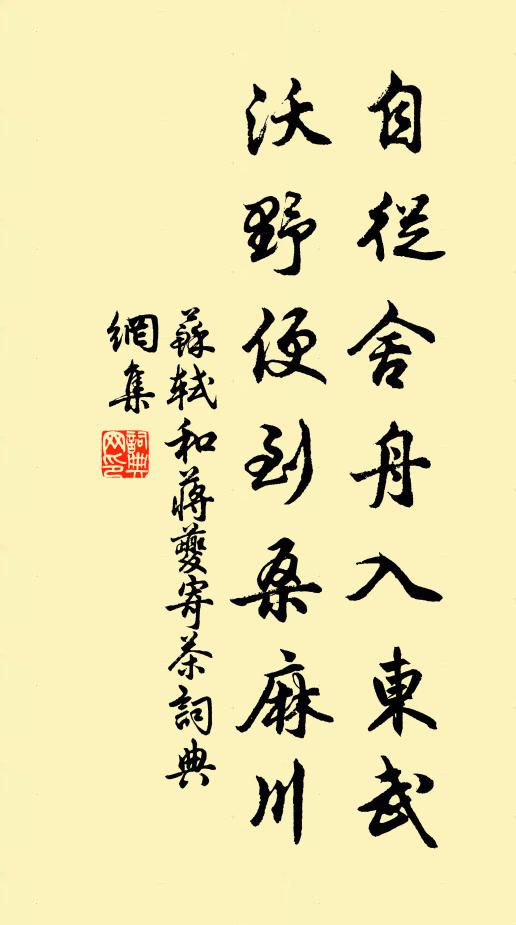 自從舍舟入東武
沃野便到桑麻川
蘇軾和蔣夔寄茶詞典
網集
詞典
网印